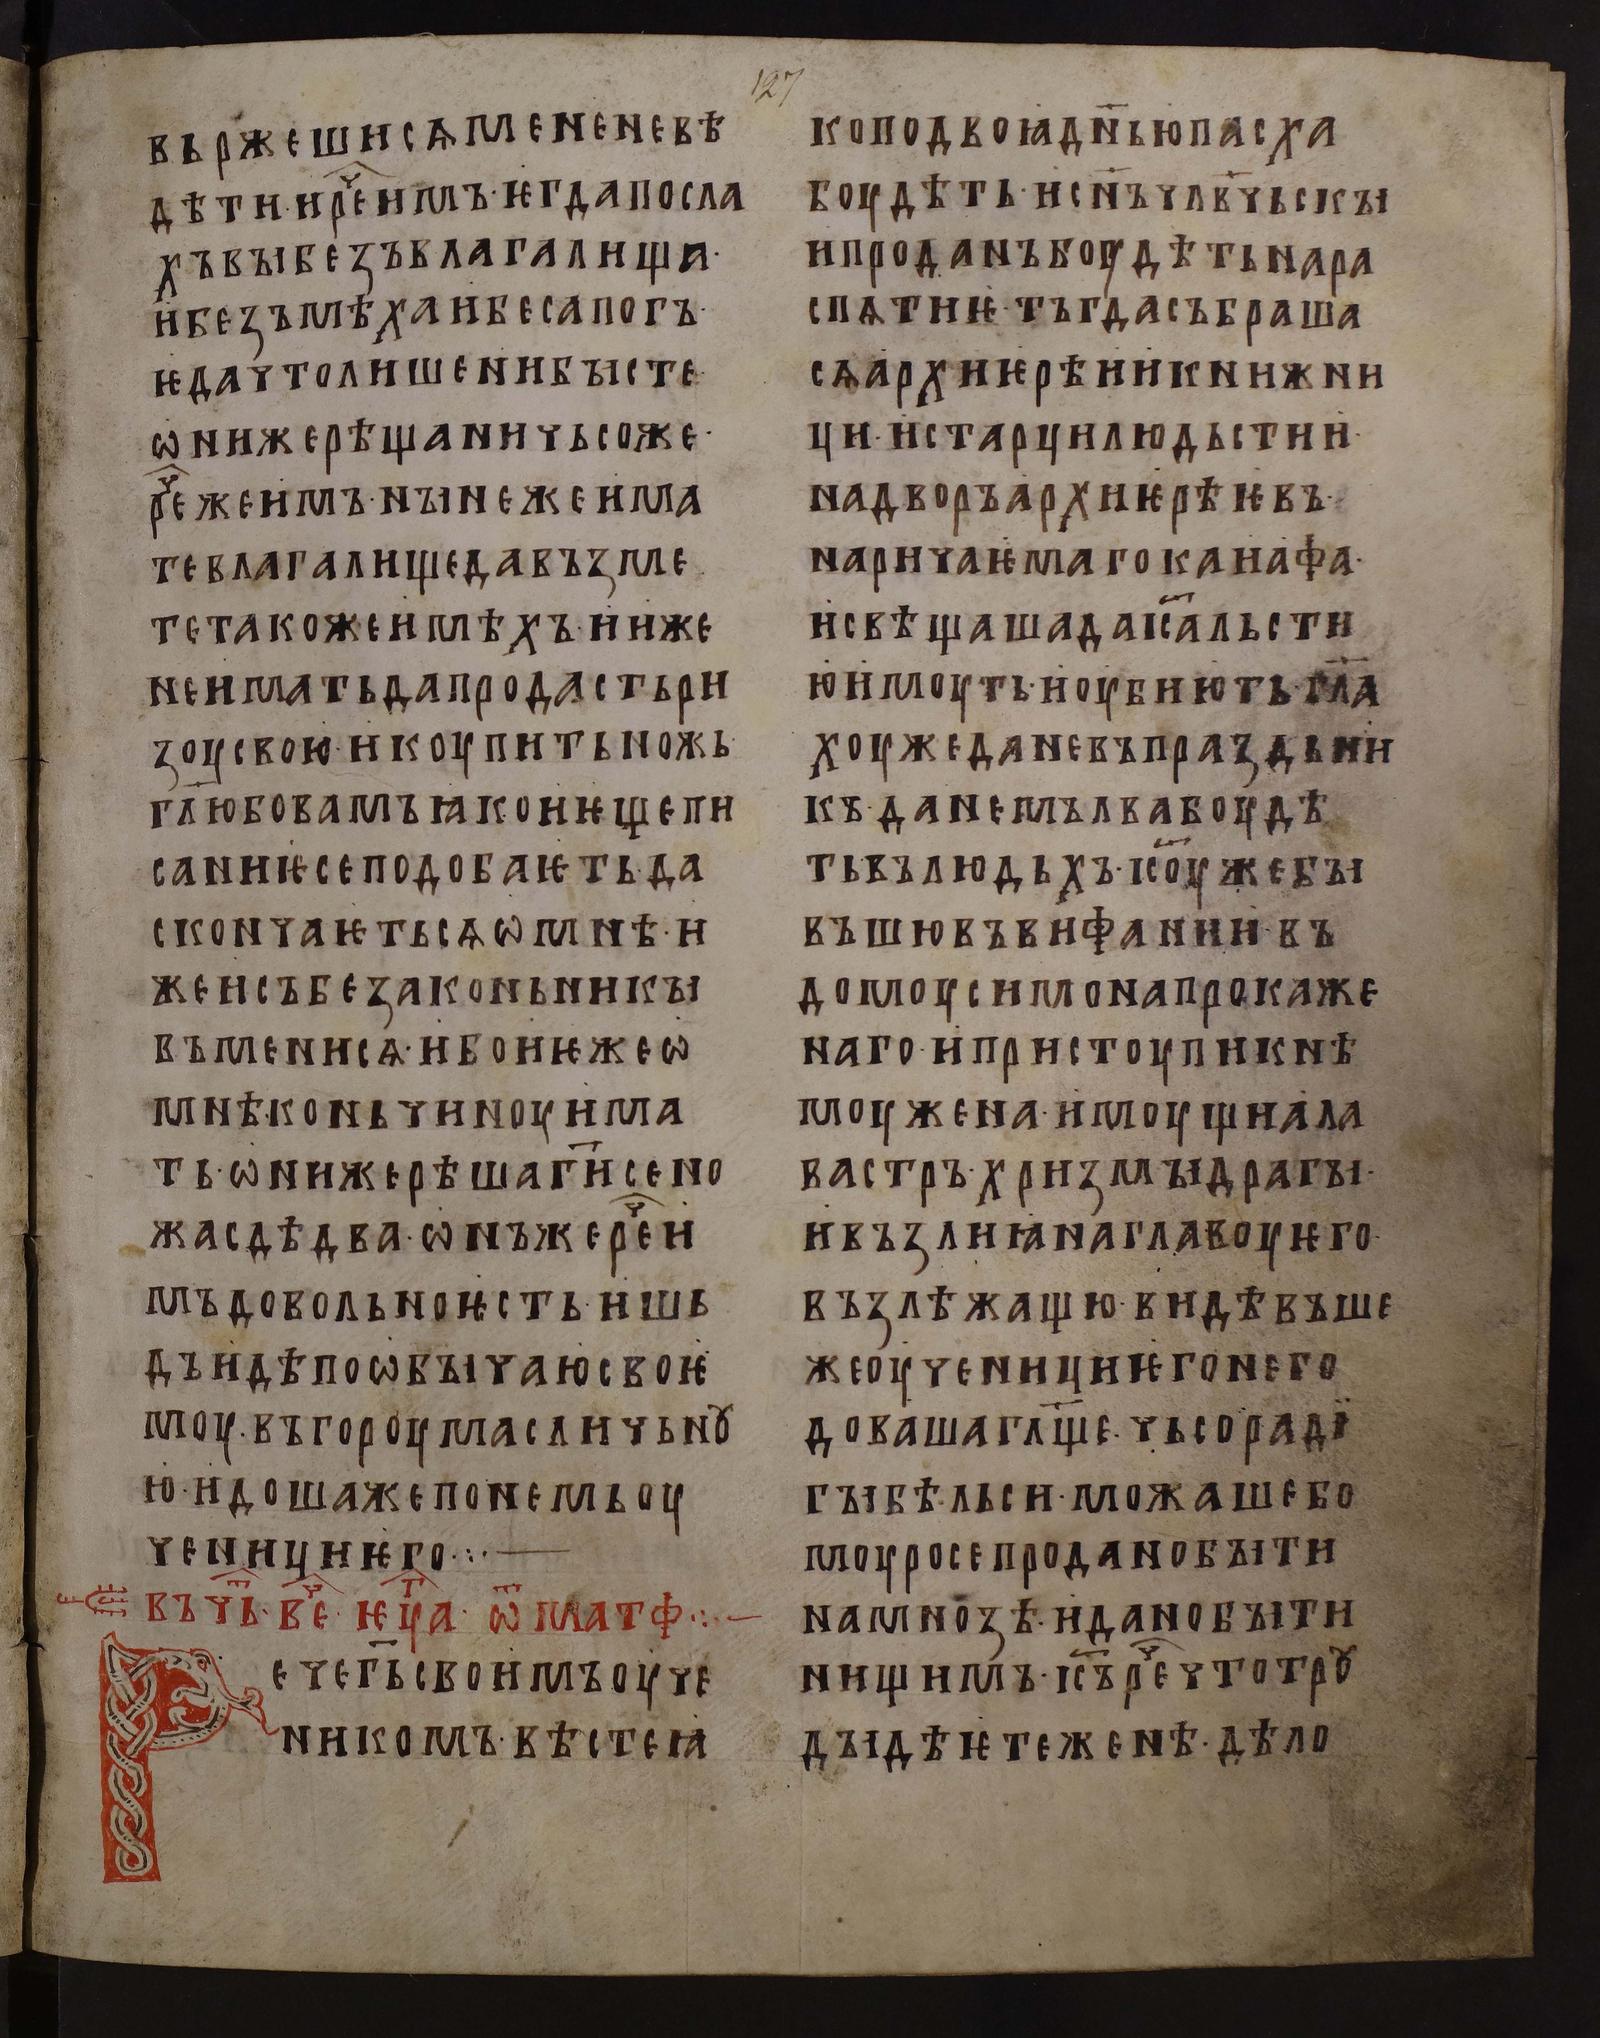 127
вьржешисѧмененевѣ
дѣти·ирече҃имъ·ѥгдапосла
хъвꙑбезъвлагалища·
ибезъмѣхаибесапогъ·
ѥдачтолишенибꙑсте·
ѡнижерѣшаничьсоже·
рече҃жеимъ·нꙑнежеима
тевлагалищедавъзме
тетакожеимѣхъ·ииже
неиматьдапродастьри
зоусвою·икоупитьножь
гл҃юбовамъꙗкоиѥщепи
саниѥсеподобаѥть·да
скончаѥтьсѧѡмнѣ·и
жеисъбезаконьникꙑ
въменисѧ·ибоиѥжеѡ
мнѣ·коньчиноуима
ть·ѡнижерѣшаги҃сено
жасдѣдва·ѡнъжерече҃и
мъдовольноѥсть·ишь
дъидѣпоѡбꙑчаюсвоѥ
моу·въгороумасличьнꙋ
ю·идошажепонемьоу
ченициѥго·:·—
въчь҃·вече҃·ѥуг҃а·ѿматф·:·—
Речегь҃своимъоуче
никомъ·вѣстеꙗ
коподвоюадн҃ьюпасха
боудѣть·исн҃ъчл҃вч҃ьскꙑ
ипроданъбоудѣтьнара
спѧтиѥ·тъгдасъбраша
сѧархиѥрѣиикнижни
ци·истарцилюдьстии·
надворъархиѥрѣѥвъ·
наричаѥмагокаиафа·
исвѣщашадаіс҃альсти
юимоуть·иоубиють·гл҃а
хоужеданевъпраздьни
къ·данемълвабоудѣ
тьвълюдьхъ·іс҃оужебꙑ
въшювъвифании·въ
домоусимонапрокаже
наго·ипристоупикнѣ
моужена·имоущиала
вастръ·хризмꙑдрагꙑ·
ивъзлиꙗнаглавоуѥго·
възлѣжащю·видѣвъше
жеоученициѥгонего
довашагл҃ще·чьсоради
гꙑбѣльси·можашебо
моуросепроданобꙑти
намнозѣ·иданобꙑти
нищимъ·іс҃ърече҃чтотрꙋ
дꙑдѣѥтеженѣ·дѣло